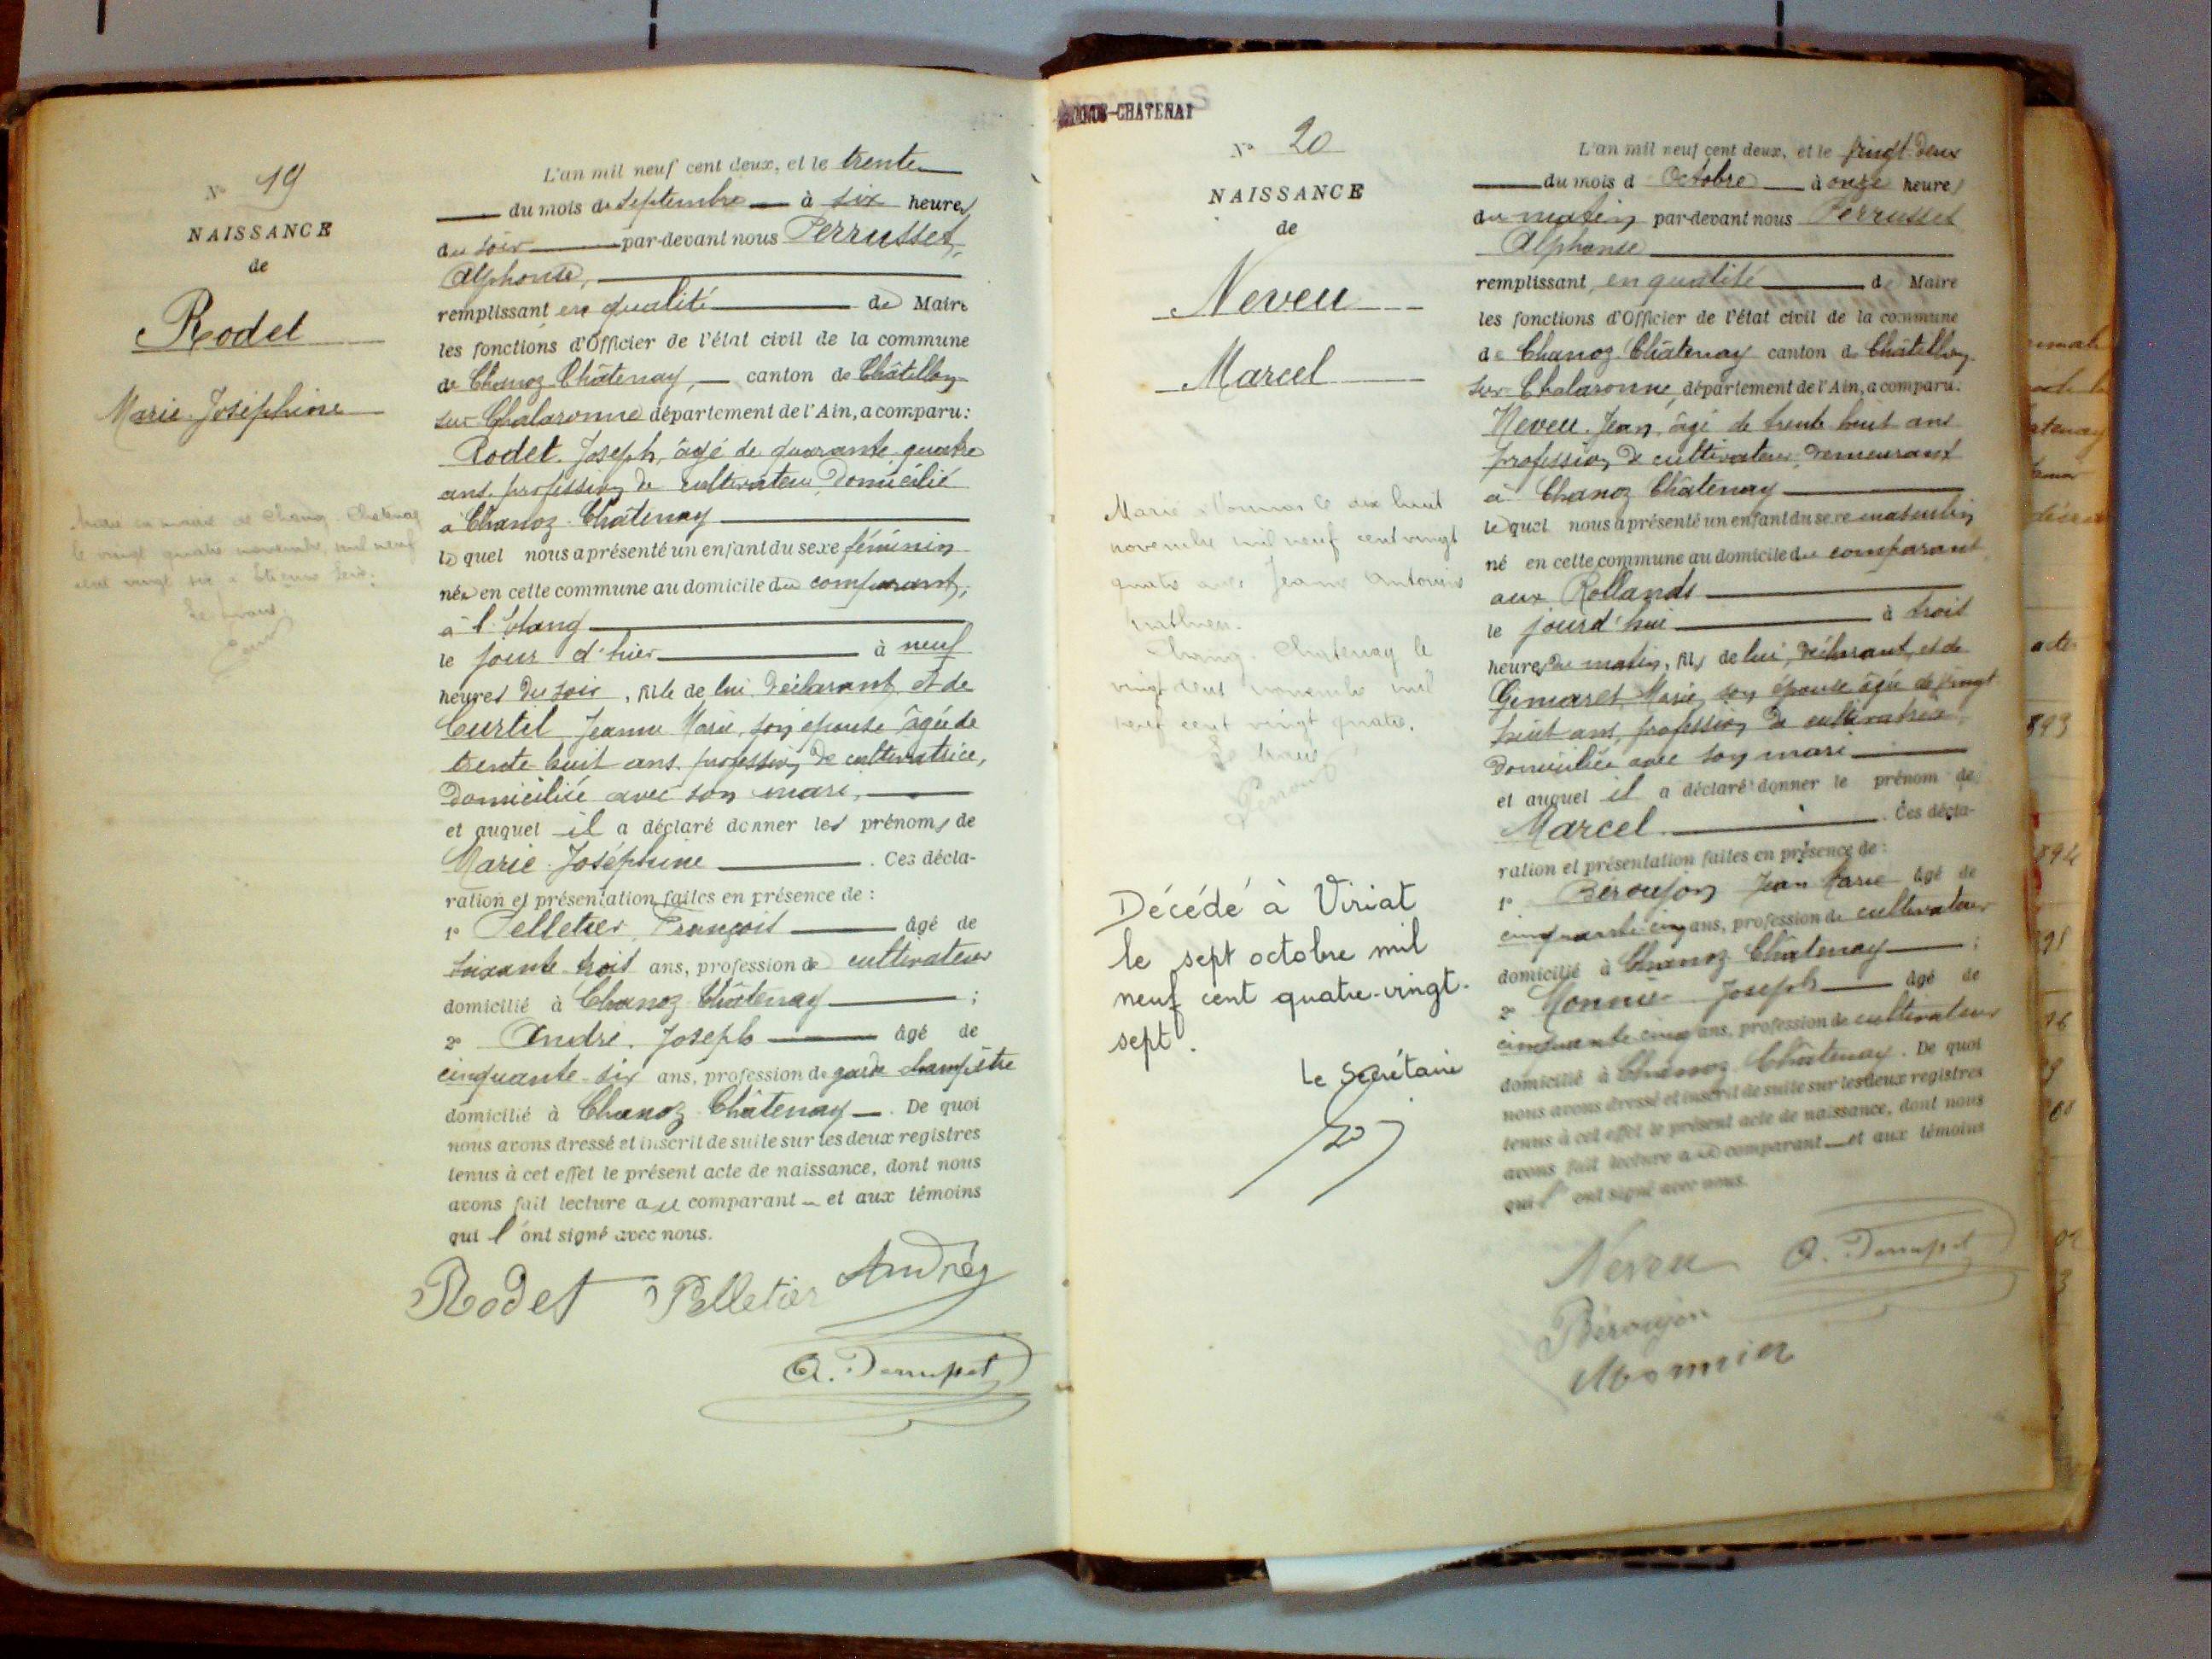 N° 19
NAISSANCE
de
Rodet
Marie Joséphine
Marié en mairie de Chanoz-Chatenay
le vingt quatre novembre, mil neuf
cent vingt six à Etienne
Le Maire
L'an mil neuf cent deux, et le trente
du mois de Septembre à six heures
du soir par-devant nous Perrusset,
Alphonse,
remplissant en qualité de Maire
les fonctions d'Officier de l'état civil de la commune
de Chanoz-Châtenay, canton de Châtillon
sur Chalaronne département de l'Ain, a comparu:
Rodet Joseph, âgé de quarante quatre
ans, profession de cultivateur, domicilié
à Chanoz-Châtenay
le quel nous a présenté un enfant du sexe féminin
née en cette commune au domicile du comparant,
à l'étang
le jour d'hier à neuf
heures du soir, fille de lui déclarant, et de
Curtil Jeanne Marie, son épouse âgée de
trente huit ans, profession de cultivatrice,
domiciliée avec son mari,
et auquel il a déclaré donner les prénoms de
Marie Joséphine. Ces décla-
ration et présentation faites en présence de :
1° Pelletier, François âgé de
soixante trois ans, profession de cultivateur
domicilié à Chanoz-Châtenay ;
2° André, Joseph âgé de
cinquante-six ans, profession de garde champêtre
domicilié à Chanoz Châtenay. De quoi
nous avons dressé et inscrit de suite sur les deux registres
tenus à cet effet le présent acte de naissance, dont nous
avons fait lecture au comparant et aux témoins
qui l'ont signé avec nous.
Rodet Pelletier André
A. Perrusset
-CHATENAY
N° 20
NAISSANCE
de
Neveu
Marcel
Marié à Vonnas le dix huit
novembre mil neuf cent vingt
quatre avec Jeanne Antonine
Chanoz-Chatenay le
vingt deux novembre mil
neuf cent vingt quatre.
Le Maire
Décédé à Viriat
le sept octobre mil
neuf cent quatre-vingt-
sept.
Le Secrétaire
L'an mil neuf cent deux, et le vingt-deux
du mois d'Octobre à onze heures
du matin par-devant nous Perrusset
Alphonse
remplissant en qualité de Maire
les fonctions d'Officier de l'état civil de la commune
de Chanoz-Châtenay canton de Châtillon
sur Chalaronne, département de l'Ain, a comparu:
Neveu Jean, âgé de trente huit ans
profession de cultivateur, demeurant
à Chanoz Châtenay
le quel nous a présenté un enfant du sexe masculin
né en cette commune au domicile du comparant
aux Rollands
le jourd'hui à trois
heures du matin, fils de lui, déclarant, et de
Gimaret Marie, son épouse âgée de vingt
huit ans, profession de cultivatrice
domiciliée avec son mari
et auquel il a déclaré donner le prénom de
Marcel. Ces décla-
ration et présentation faites en présence de :
1° Béroujon Jean Marie âgé de
cinquante cinq ans, profession de cultivateur
domicilié à Chanoz Châtenay ;
2° Monnier Joseph âgé de
cinquante cinq ans, profession de cultivateur
domicilié à Chanoz Châtenay. De quoi
nous avons dressé et inscrit de suite sur les deux registres
tenus à cet effet le présent acte de naissance, dont nous
avons fait lecture au comparant et aux témoins
qui l'ont signé avec nous.
Neveu A. Perrusset
Béroujon
Monnier